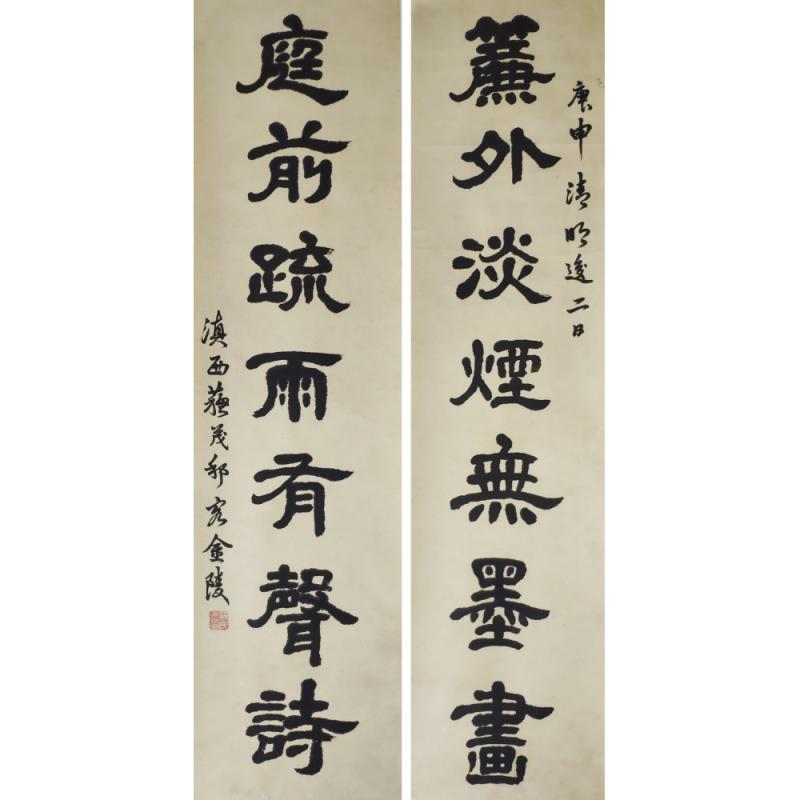 庚申清明後二日
簾外淡煙無墨畫
庭前疏雨有聲詩
滇西蘇茂邨客金陵